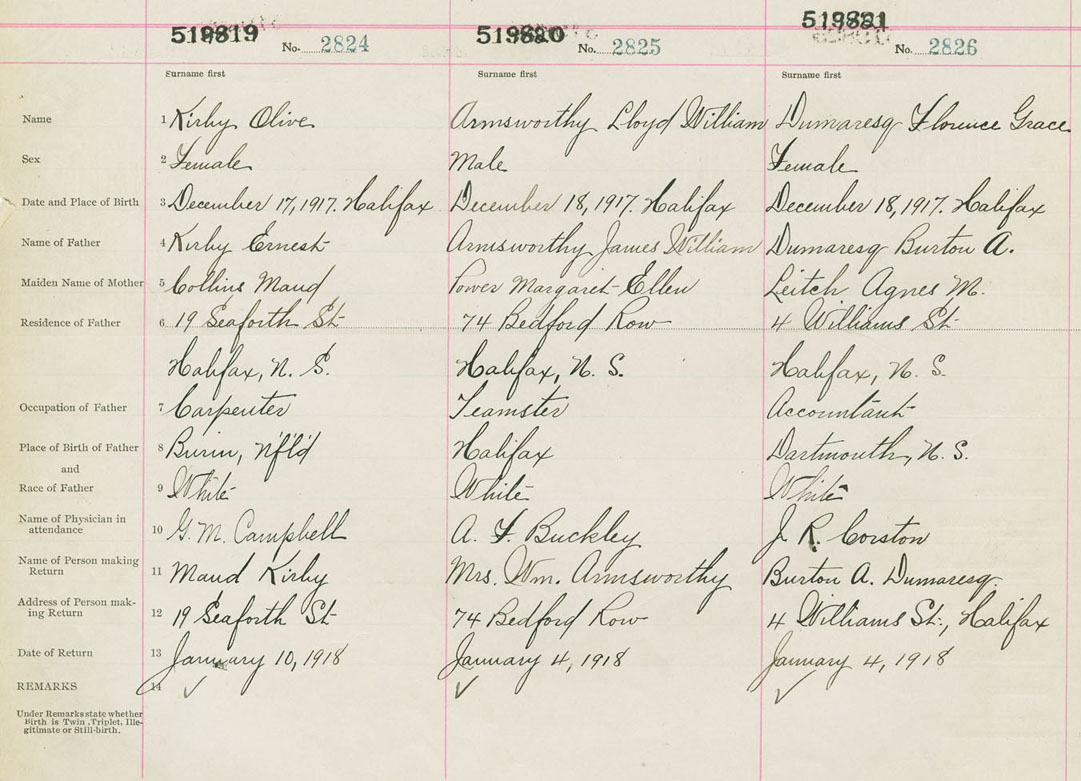 519819 519820 519821
No. 2824 No. 2825 No. 2826
Surname first Surname first Surname first
Name 1 Kirby Olive Armsworthy Lloyd William Dumaresq Florence Grace
Sex 2 Female Male Female
Date and Place of Birth 3 December 17, 1917. Halifax December 18, 1917. Halifax December 18, 1917. Halifax
Name of Father 4 Kirby Ernest Armsworthy James William Dumaresq Burton A.
Maiden Name of Mother 5 Collins Maud Power Margaret Ellen Leitch Agnes M.
Residence of Father 6 19 Seaforth St 74 Bedford Row 4 Williams St
Halifax, N. S. Halifax, N. S. Halifax, N. S.
Occupation of Father 7 Carpenter Teamster Accountant
Place of Birth of Father 8 Burin, N'f'l'd Halifax Dartmouth, N. S.
and
Race of Father 9 White White White
Name of Physician in attendance 10 G. M. Campbell A. F. Buckley J. R. Corston
Name of Person making Return 11 Maud Kirby Mrs. Wm. Armsworthy Burton A. Dumaresq.
Address of Person mak-
ing Return 12 19 Seaforth St 74 Bedford Row 4 Williams St., Halifax
Date of Return 13 January 10, 1918 January 4, 1918 January 4, 1918
REMARKS 14 ✓ ✓ ✓
Under Remarks state whether
Birth is Twin, Triplet, Ille-
gitimate or Still-birth.